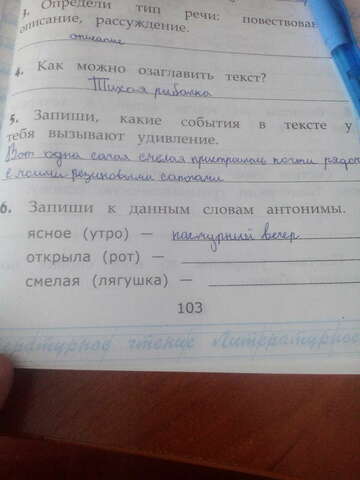 3. Определи тип речи: повествование,
описание, рассуждение.
описание
4. Как можно озаглавить текст?
Тихая рыбалка
5. Запиши, какие события в тексте у
тебя вызывают удивление.
Вот одна самая смелая пристроилась почти рядом
с моими резиновыми сапогами
6. Запиши к данным словам антонимы.
ясное (утро) — пасмурный вечер
открыла (рот) —
смелая (лягушка) —
103
Литературное чтение Литературное